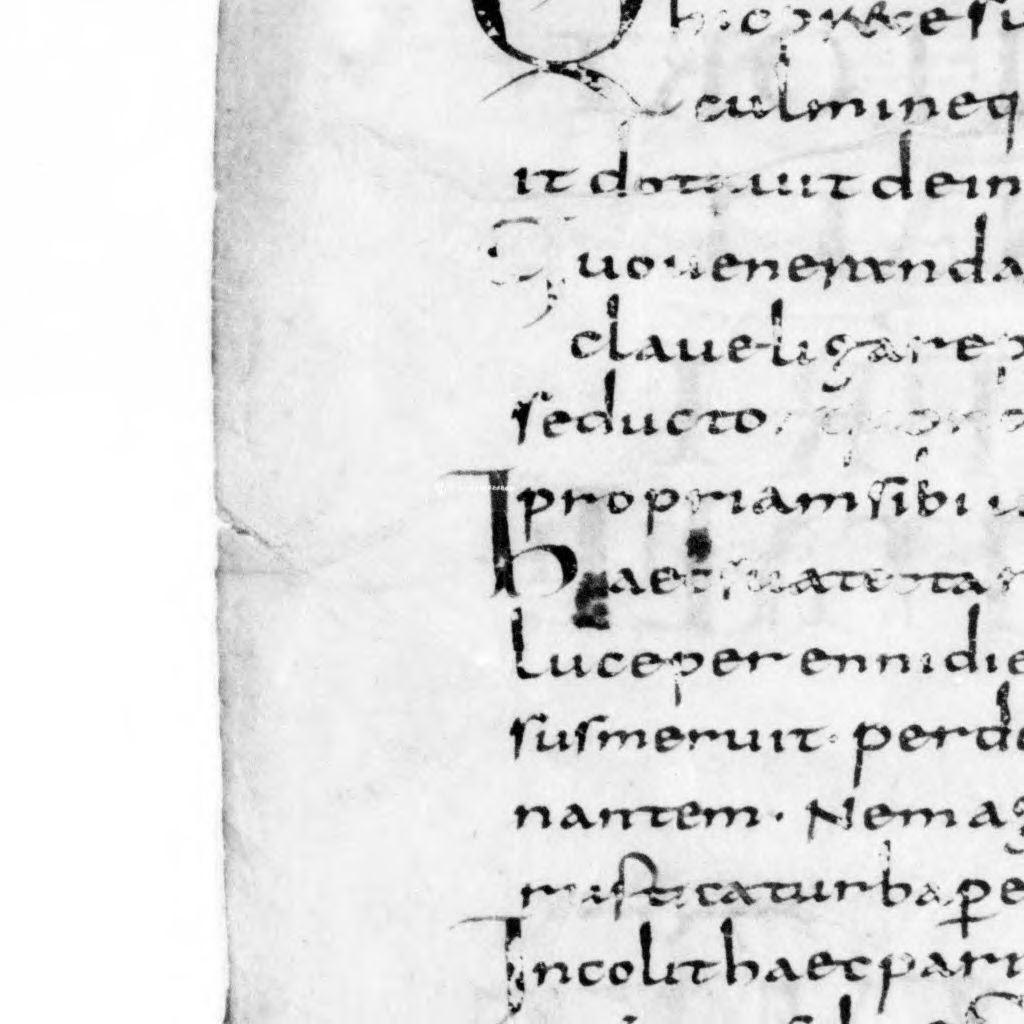 culmine q
it dotauit dein
Quo ueneranda
claue ligare p
seducto
propriam sibi u
haec
luce perenni die
sus meruit · per de
nantem · Nem ag
mistica turba pe
Incolit haec par